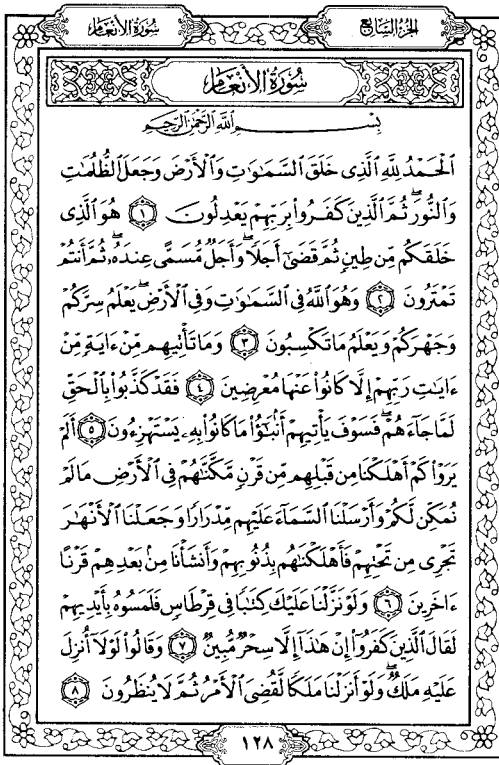 سُورَةُ الأَنْعَامِ
الجُزْءُ السَّابِعُ
سُورَةُ الأَنْعَامِ
بِسْمِ اللَّهِ الرَّحْمَٰنِ الرَّحِيمِ
الْحَمْدُ لِلَّهِ الَّذِي خَلَقَ السَّمَاوَاتِ وَالْأَرْضَ وَجَعَلَ الظُّلُمَاتِ
وَالنُّورَ ۖ ثُمَّ الَّذِينَ كَفَرُوا بِرَبِّهِمْ يَعْدِلُونَ ١ هُوَ الَّذِي
خَلَقَكُم مِّن طِينٍ ثُمَّ قَضَىٰ أَجَلًا ۖ وَأَجَلٌ مُّسَمًّى عِندَهُ ۖ ثُمَّ أَنتُمْ
تَمْتَرُونَ ٢ وَهُوَ اللَّهُ فِي السَّمَاوَاتِ وَفِي الْأَرْضِ ۖ يَعْلَمُ سِرَّكُمْ
وَجَهْرَكُمْ وَيَعْلَمُ مَا تَكْسِبُونَ ٣ وَمَا تَأْتِيهِم مِّنْ ءَايَةٍ مِّنْ
ءَايَاتِ رَبِّهِمْ إِلَّا كَانُوا عَنْهَا مُعْرِضِينَ ٤ فَقَدْ كَذَّبُوا بِالْحَقِّ
لَمَّا جَاءَهُمْ ۖ فَسَوْفَ يَأْتِيهِمْ أَنبَاؤُا مَا كَانُوا بِهِ يَسْتَهْزِءُونَ ٥ أَلَمْ
يَرَوْا كَمْ أَهْلَكْنَا مِن قَبْلِهِم مِّن قَرْنٍ مَّكَّنَّاهُمْ فِي الْأَرْضِ مَا لَمْ
نُمَكِّن لَّكُمْ وَأَرْسَلْنَا السَّمَاءَ عَلَيْهِم مِّدْرَارًا وَجَعَلْنَا الْأَنْهَارَ
تَجْرِي مِن تَحْتِهِمْ فَأَهْلَكْنَاهُم بِذُنُوبِهِمْ وَأَنشَأْنَا مِنْ بَعْدِهِمْ قَرْنًا
ءَاخَرِينَ ٦ وَلَوْ نَزَّلْنَا عَلَيْكَ كِتَابًا فِي قِرْطَاسٍ فَلَمَسُوهُ بِأَيْدِيهِمْ
لَقَالَ الَّذِينَ كَفَرُوا إِنْ هَٰذَا إِلَّا سِحْرٌ مُّبِينٌ ٧ وَقَالُوا لَوْلَا أُنزِلَ
عَلَيْهِ مَلَكٌ ۖ وَلَوْ أَنزَلْنَا مَلَكًا لَّقُضِيَ الْأَمْرُ ثُمَّ لَا يُنظَرُونَ ٨
١٢٨